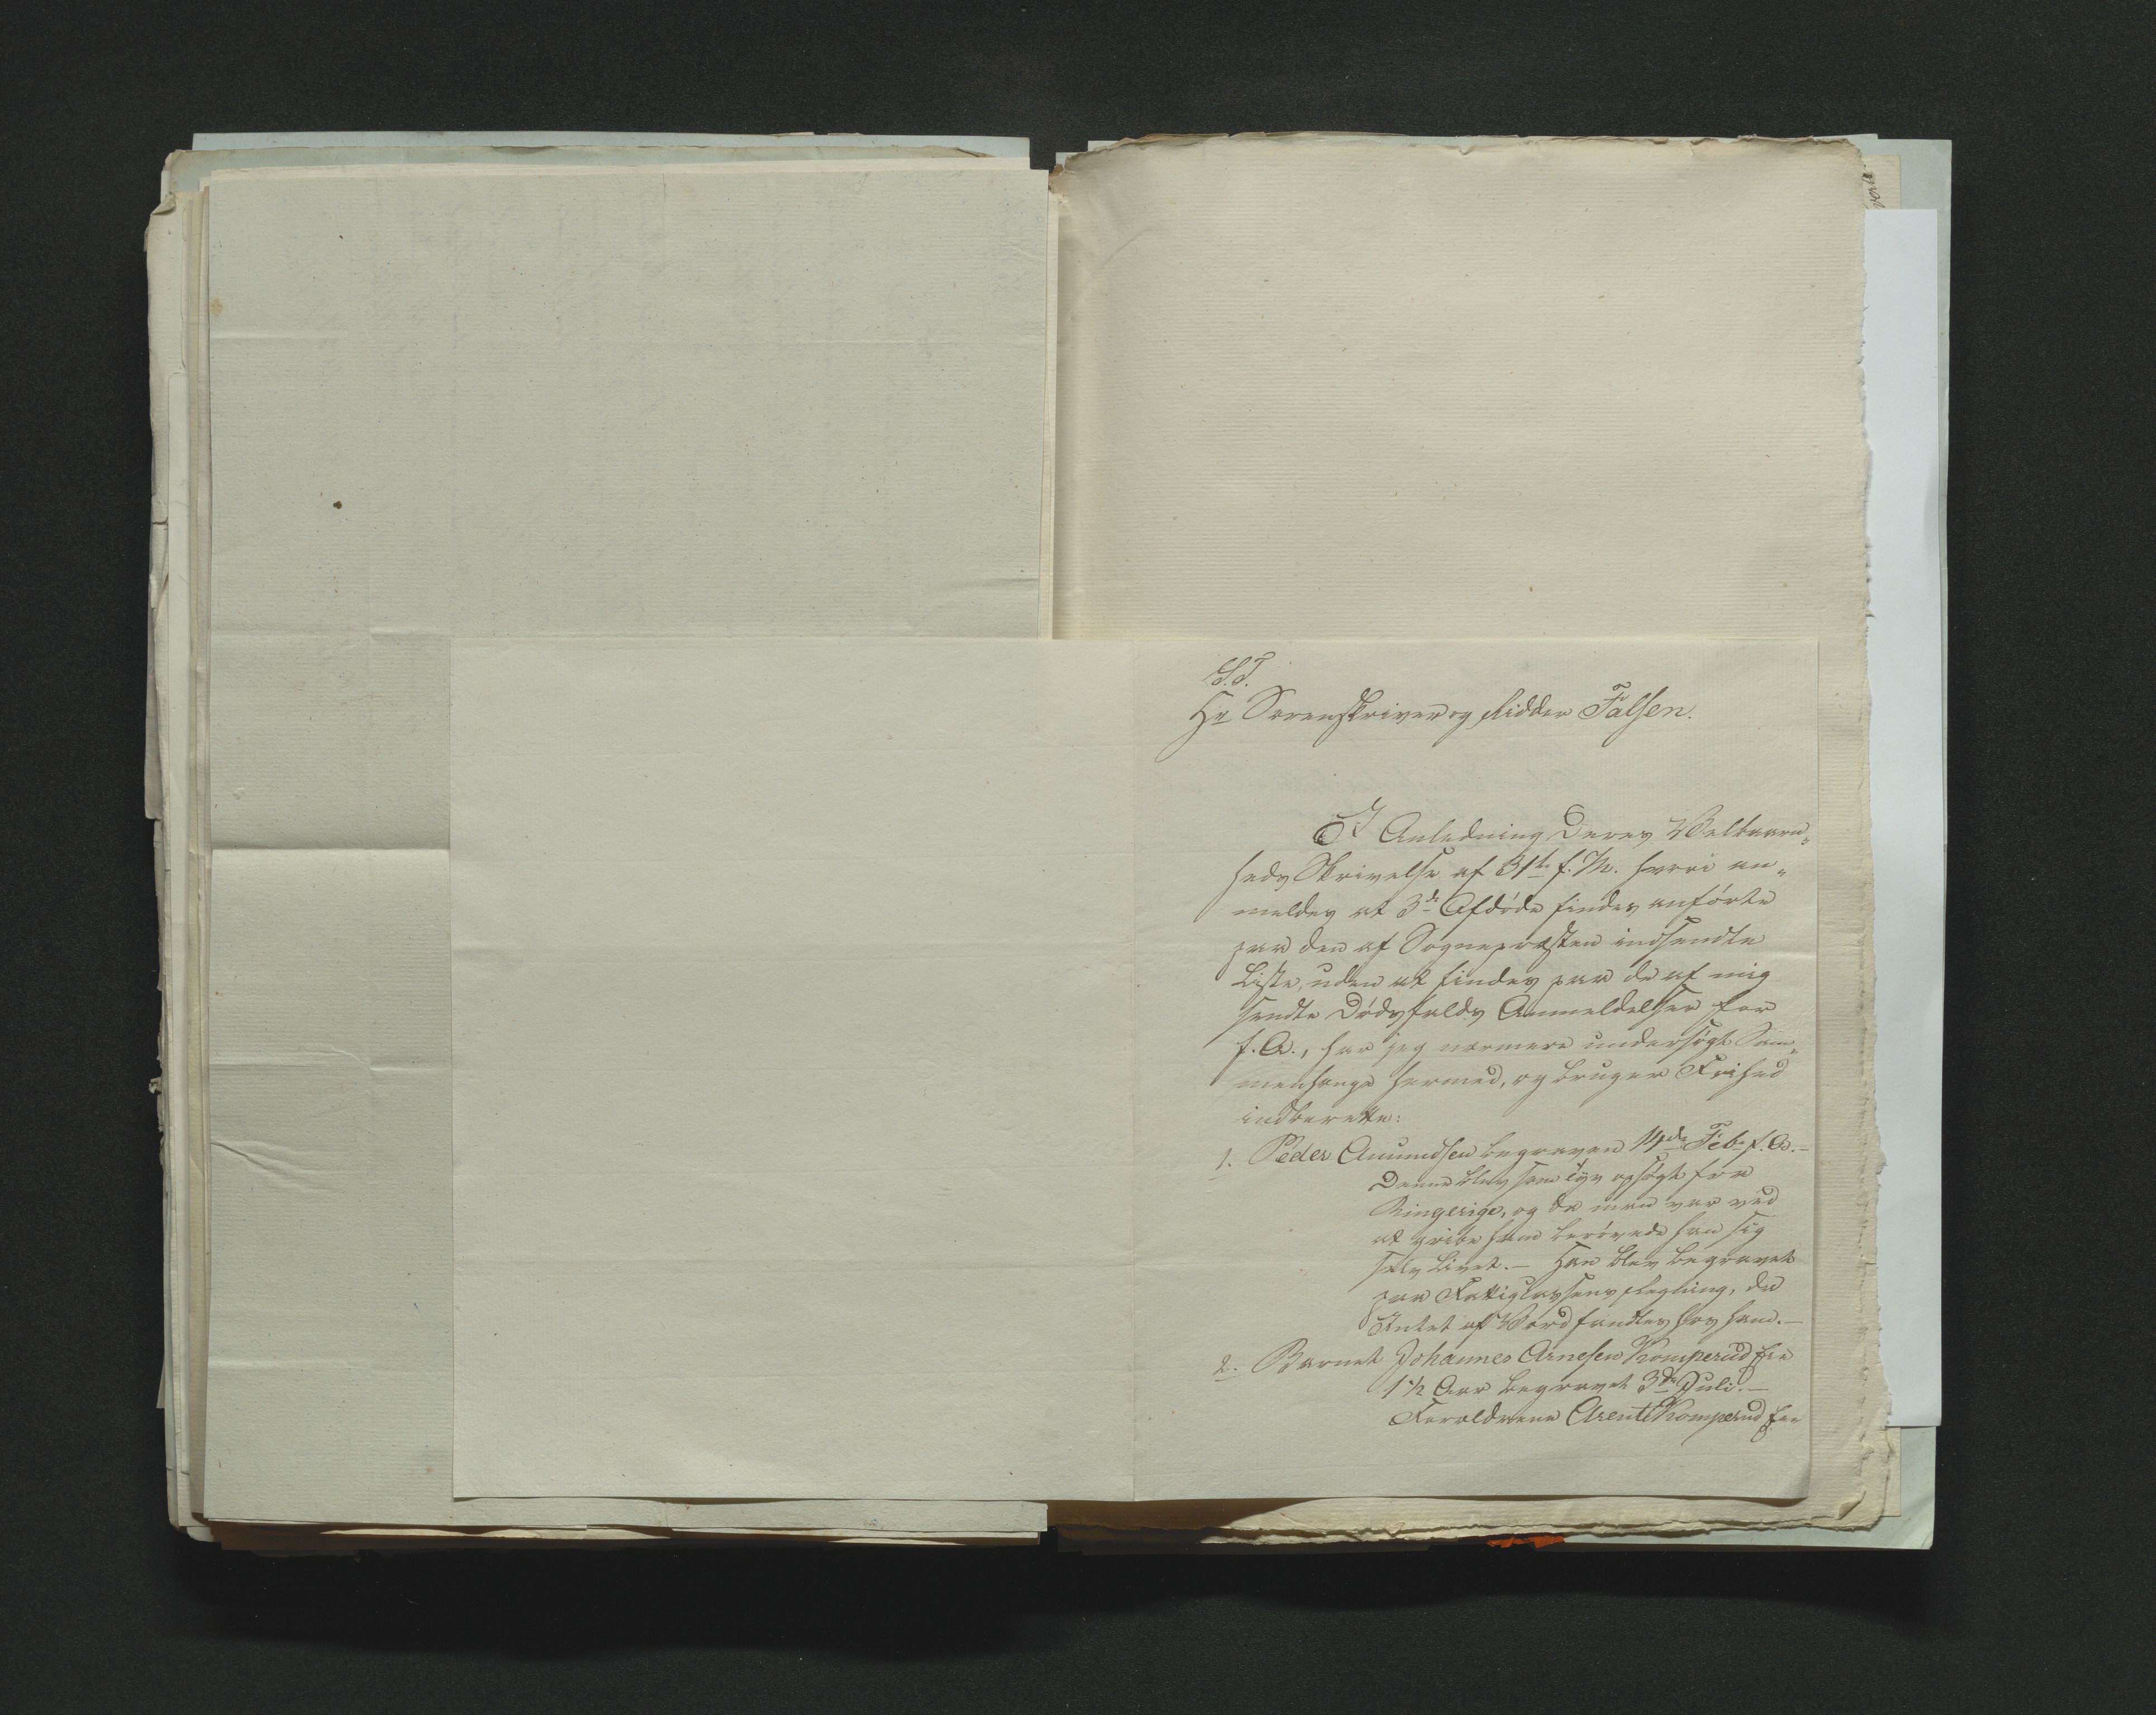 S.T.
Hr Sorenskriver og Ridder Falsen.
I Anledning Deres Velbaaren„
heds Skrivelse af 31te f. M. hvori an„
meldes at 3de Afdöde findes anförte
paa den af Sognepræsten indsendte
Liste, uden at findes paa de af mig
sendte Dödsfalds Anmeldelser for
f. A., har jeg nærmere undersögt Sam„
menhænge hermed, og bruger Frihed
indberette:
1. Peder Amundsen begraven 14de Feb. f. A. —
Denne blev som Tyv opsögt fra
Ringerige, og da man var ved
at gribe ham berövede han sig
selv Livet. — Han blev begravet
paa Fattigcassens Regning, da
Intet af Værd fandtes hos ham. —
2. Barnet Johannes Arnesen Komperud Eie
1 1/2 Aar begravet 3de Juli. —
Forældrene Arent Komperud Eie